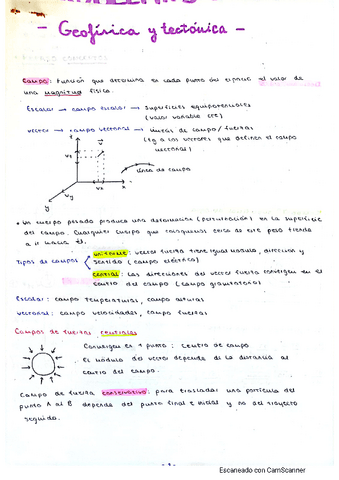 - Geofísica y tectónica -
Campo: Función que determina en cada punto del espacio el valor de
una magnitud física.
Escalar → campo escalar → superficies equipotenciales
(valor variable cte)
vector → campo vectorial → líneas de campo/fuerzas
(tg a los vectores que definen el campo
vectorial)
línea de campo
* Un cuerpo pesado produce una deformación (perturbación) en la superficie
del campo. Cualquier cuerpo que coloquemos cerca de este pero tienda
a ir hacia él.
Tipos de campos
uniforme: vector fuerza tiene igual módulo, dirección y
sentido (campo eléctrico)
central: Las direcciones del vector fuerza convergen en el
centro del campo (campo gravitatorio)
Escalar: campo temperaturas, campo alturas
vectorial: campo velocidades, campo fuerzas
Campos de fuerzas centrales
Convergen en 1 punto: centro de campo
El módulo del vector depende de la distancia al
centro del campo.
Campo de fuerza conservativo: para trasladar una partícula del
punto A al B depende del punto final e inicial y no del trayecto
seguido.
- 1 -
Escaneado con CamScanner